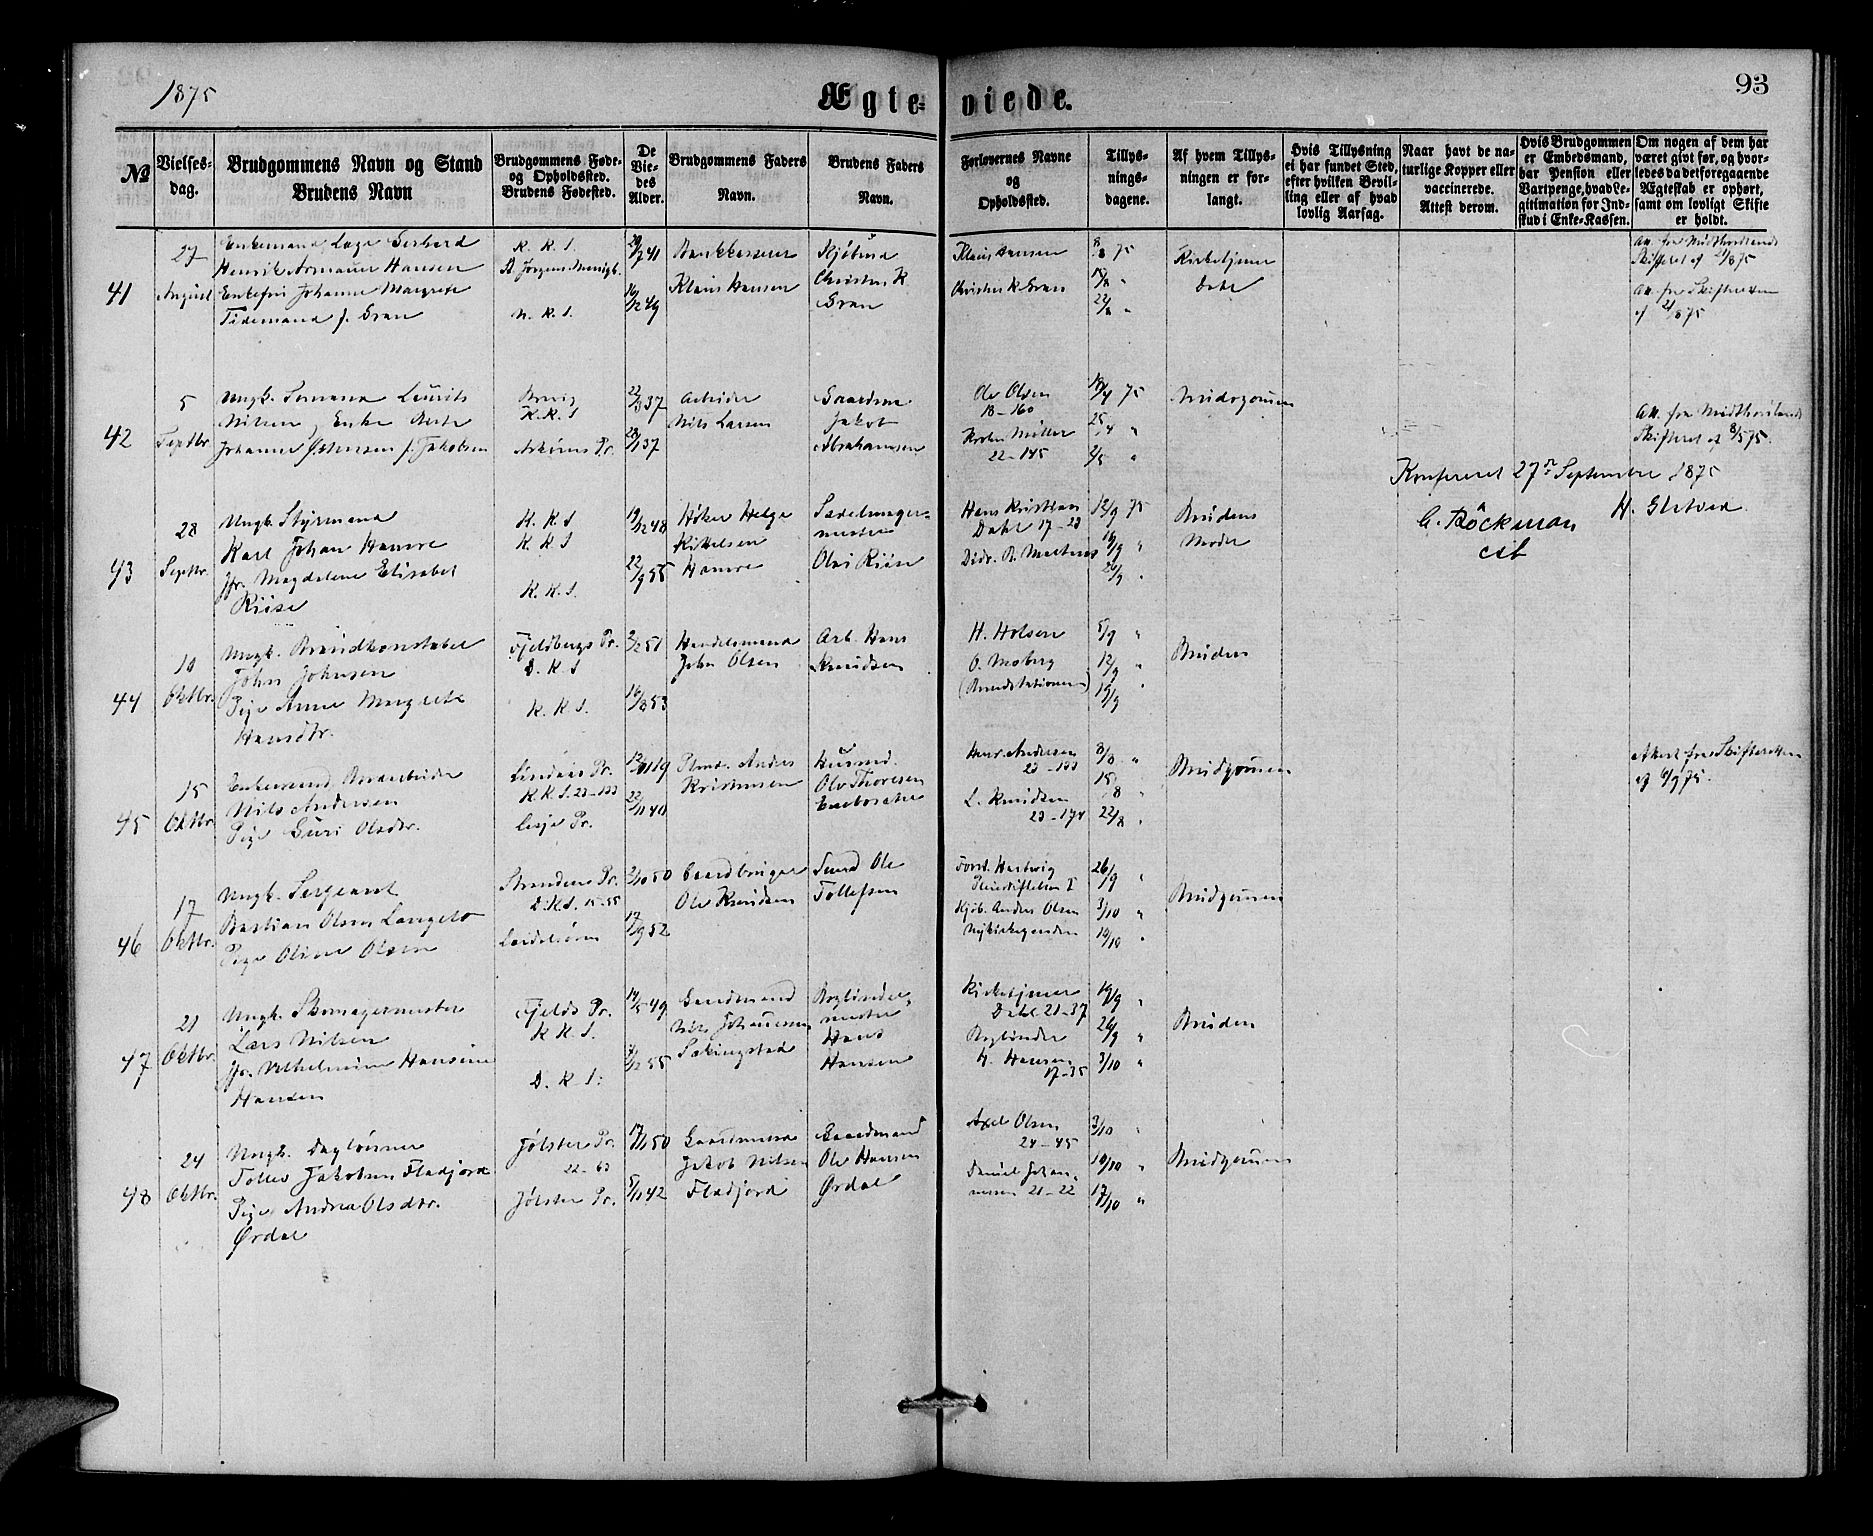 1875
Ægte-
viede.
93
No
Vielses-
dag.
Brudgommens Navn og Stand
Brudens Navn
Brudgommens Føde-
og Opholdssted.
Brudens Fødested.
De
Vie-
des
Alder.
Brudgommens Faders
Navn.
Brudens Faders
Navn.
Forlovernes Navne
og
Opholdssted.
Tillys-
nings-
dagene.
Af hvem Tillys-
ningen er for-
langt.
Hvis Tillysning
ei har fundet Sted,
efter hvilken Bevil-
ling eller af hvad
lovlig Aarsag.
Naar havt de na-
turlige Kopper eller
vaccinerede.
Attest derom.
Hvis Brudgommen
er Embedsmand,
har Pension eller
Vartpenge, hvad Le-
gitimation for Ind-
skud i Enke-Kassen.
Om nogen af dem har
været givt før, og hvor-
ledes da det foregaaende
Ægteskab er ophørt,
samt om lovligt Skifte
er holdt.
41
27
August
Enkemand Læge Gerhard
Henrik Armauer Hansen
Enkefru Johanne Margrete
Tidemand f. Gran
K. K. S.
St. Jørgens
N. K. S.
Klaus Hansen
Kjøbmd
Christen K
Gran
Klaus Hansen
Christen K Gran
8/8 75
15/8 "
22/8 "
Kirketjener
Dahl
Att. fra Midthordlands
Skifteret af 21/8 75
Att. fra Skifteretten
af 21/8 75
42
5
Septbr
Ungk. Sømand Laurits
Nilsen, Enke
Johanne f. Jakobsen
K. K. S
Askøens Pr.
22/8 37
28/1 37
Arbeider
Nils Larsen
Gaardm.
Jakob
Abrahamsen
Ole Olsen
18-160
Müller
22-145
18/4 75
25/4 "
2/5 "
Brudgommen
Att. fra Midthordlands
Skifteret af 8/5 75.
Konfereret 27de September 1875
C. Böckman
H. Gletved
43
28
Septbr.
Ungk. Styrmand
Karl Johan Hamre
Jfr. Magdalene Elisabet
Riise
K. K. S
K. K. S
K. K. S.
19/12 48
22/9 55
Høker Helge
Kittelsen
Hamre
Sadelmager-
mester
Olai Riise
Hans Kristian
Dahl 17-23
Didr. B. Martens
12/9 75
19/9 "
26/9 "
Brudens
Moder
44
10
Oktbr.
Ungk. Brandkonstabel
John Johnsen
Pige Anne Margrete
Hansdtr.
Fjeldbergs Pr.
D. K. S
K. K. S.
2/2 51
16/8 53
Handelsmand
John Olsen
Arb. Hans
Knudsen
H. Holsen
O. Moberg
(Brandstationen)
5/9 "
12/9 "
19/9 "
Bruden
45
15
Oktbr.
Enkemand
Nils Andersen
Pige Guri Olsdtr.
Lindaas Pr.
K. K. S. 23-133
Lesje Pr.
22/11 40
Anders
Kristensen
Husmd.
Ole Thoresen
Andersen
23-133
L. Knudsen
23-174
8/8 "
15/8 "
22/8 "
Brudgommen
Attest fra Skifteretten
af 6/9 75.
46
17
Oktbr.
Ungk. Sergeant
Bastian Olsen Langeto
Pige Oline Olsen
Strandens Pr.
D. K. S. 15-55
2/10 50
17/9 52
Gaardbruger
Ole Knudsen
Ole
Tollefsen
Hartwig
Kjøb. Anders Olsen
Nykirkegaarden
26/9 "
3/10 "
10/10 "
Brudgommen
47
21
Oktbr.
Ungk. Skomagermester
Lars Nilsen
Jfr. Vilhelmine Hansine
Hansen
Fjelds Pr.
K. K. S.
D. K. S.
14/5 49
Gaardmand
Nils Johannesen
Sekingstad
Bogbinder-
mester
Hans
Hansen
Kirketjener
Dahl 21-37
Bogbinder
H. Hansen
17-35
19/9 "
26/9 "
3/10 "
Bruden
48
24
Oktbr.
Ungk. Daglønner
Tollev Jakobsen Fladjord
Pige Andrea Olsdtr.
Ørdal
Jølster Pr.
22-63
Jølster Pr.
17/1 50
5/11 42
Gaardmand
Jakob Nilsen
Fladjord
Gaardmand
Ole Hansen
Ørdal
Axel Olsen
24-45
Daniel Johan-
nessen 21-22
3/10 "
10/10 "
17/10 "
Brudgommen